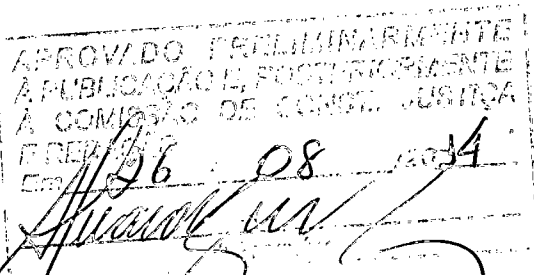 APROVADO PRELIMINARMENTE
À PUBLICAÇÃO E, POSTERIORMENTE
À COMISSÃO DE CONST. JUSTIÇA
E REDAÇÃO
Em 26 08 /2014